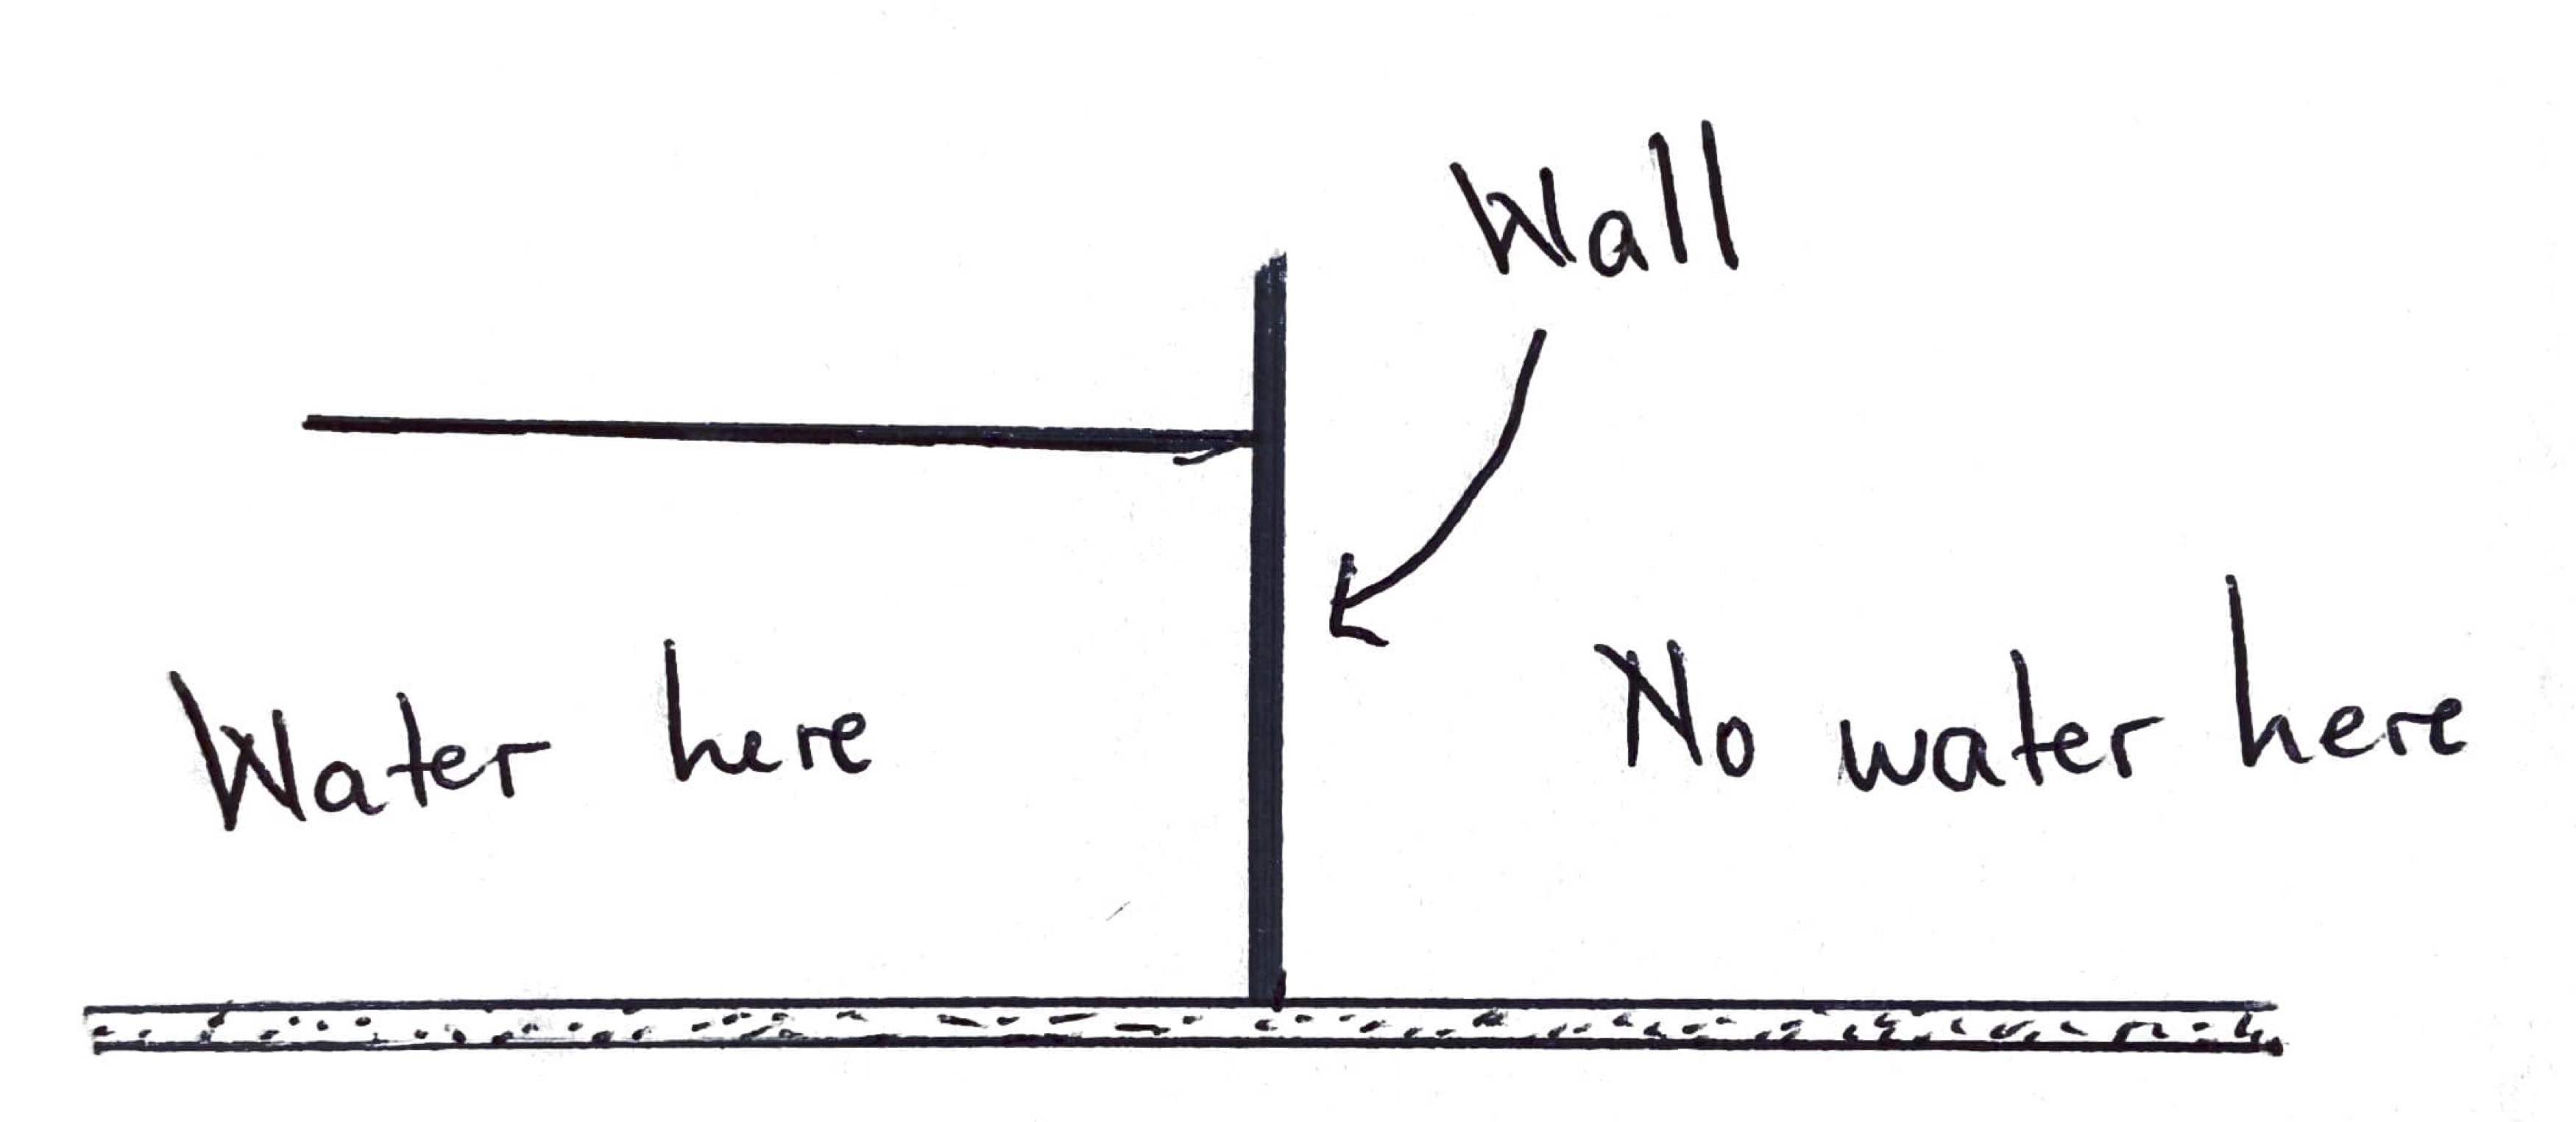 Wall
Water here
No water here